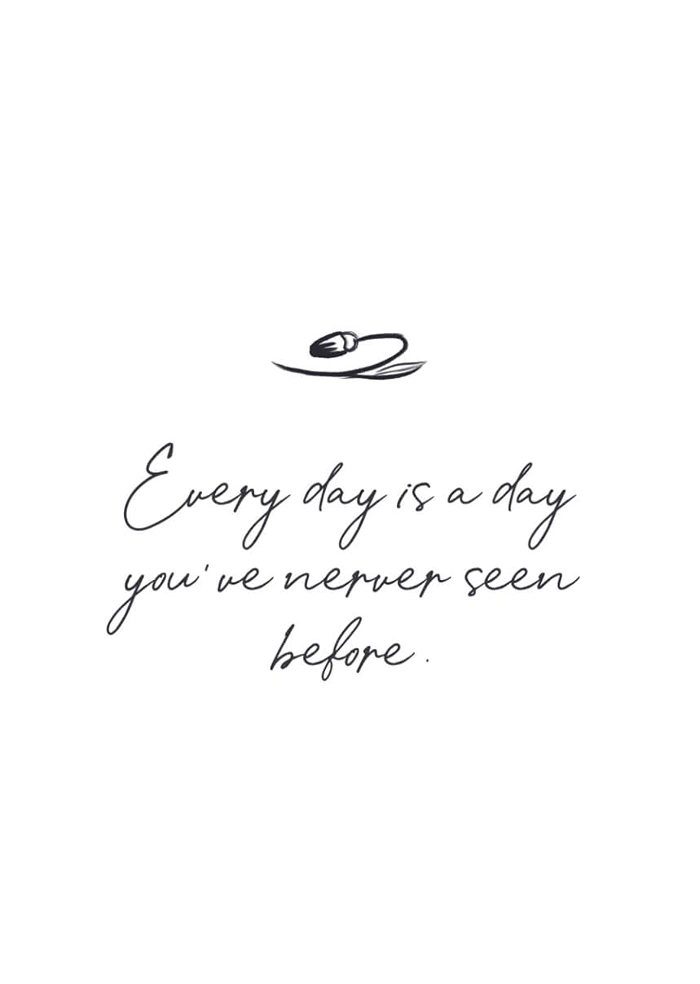 Every day is a day
you've nerver seen
before.